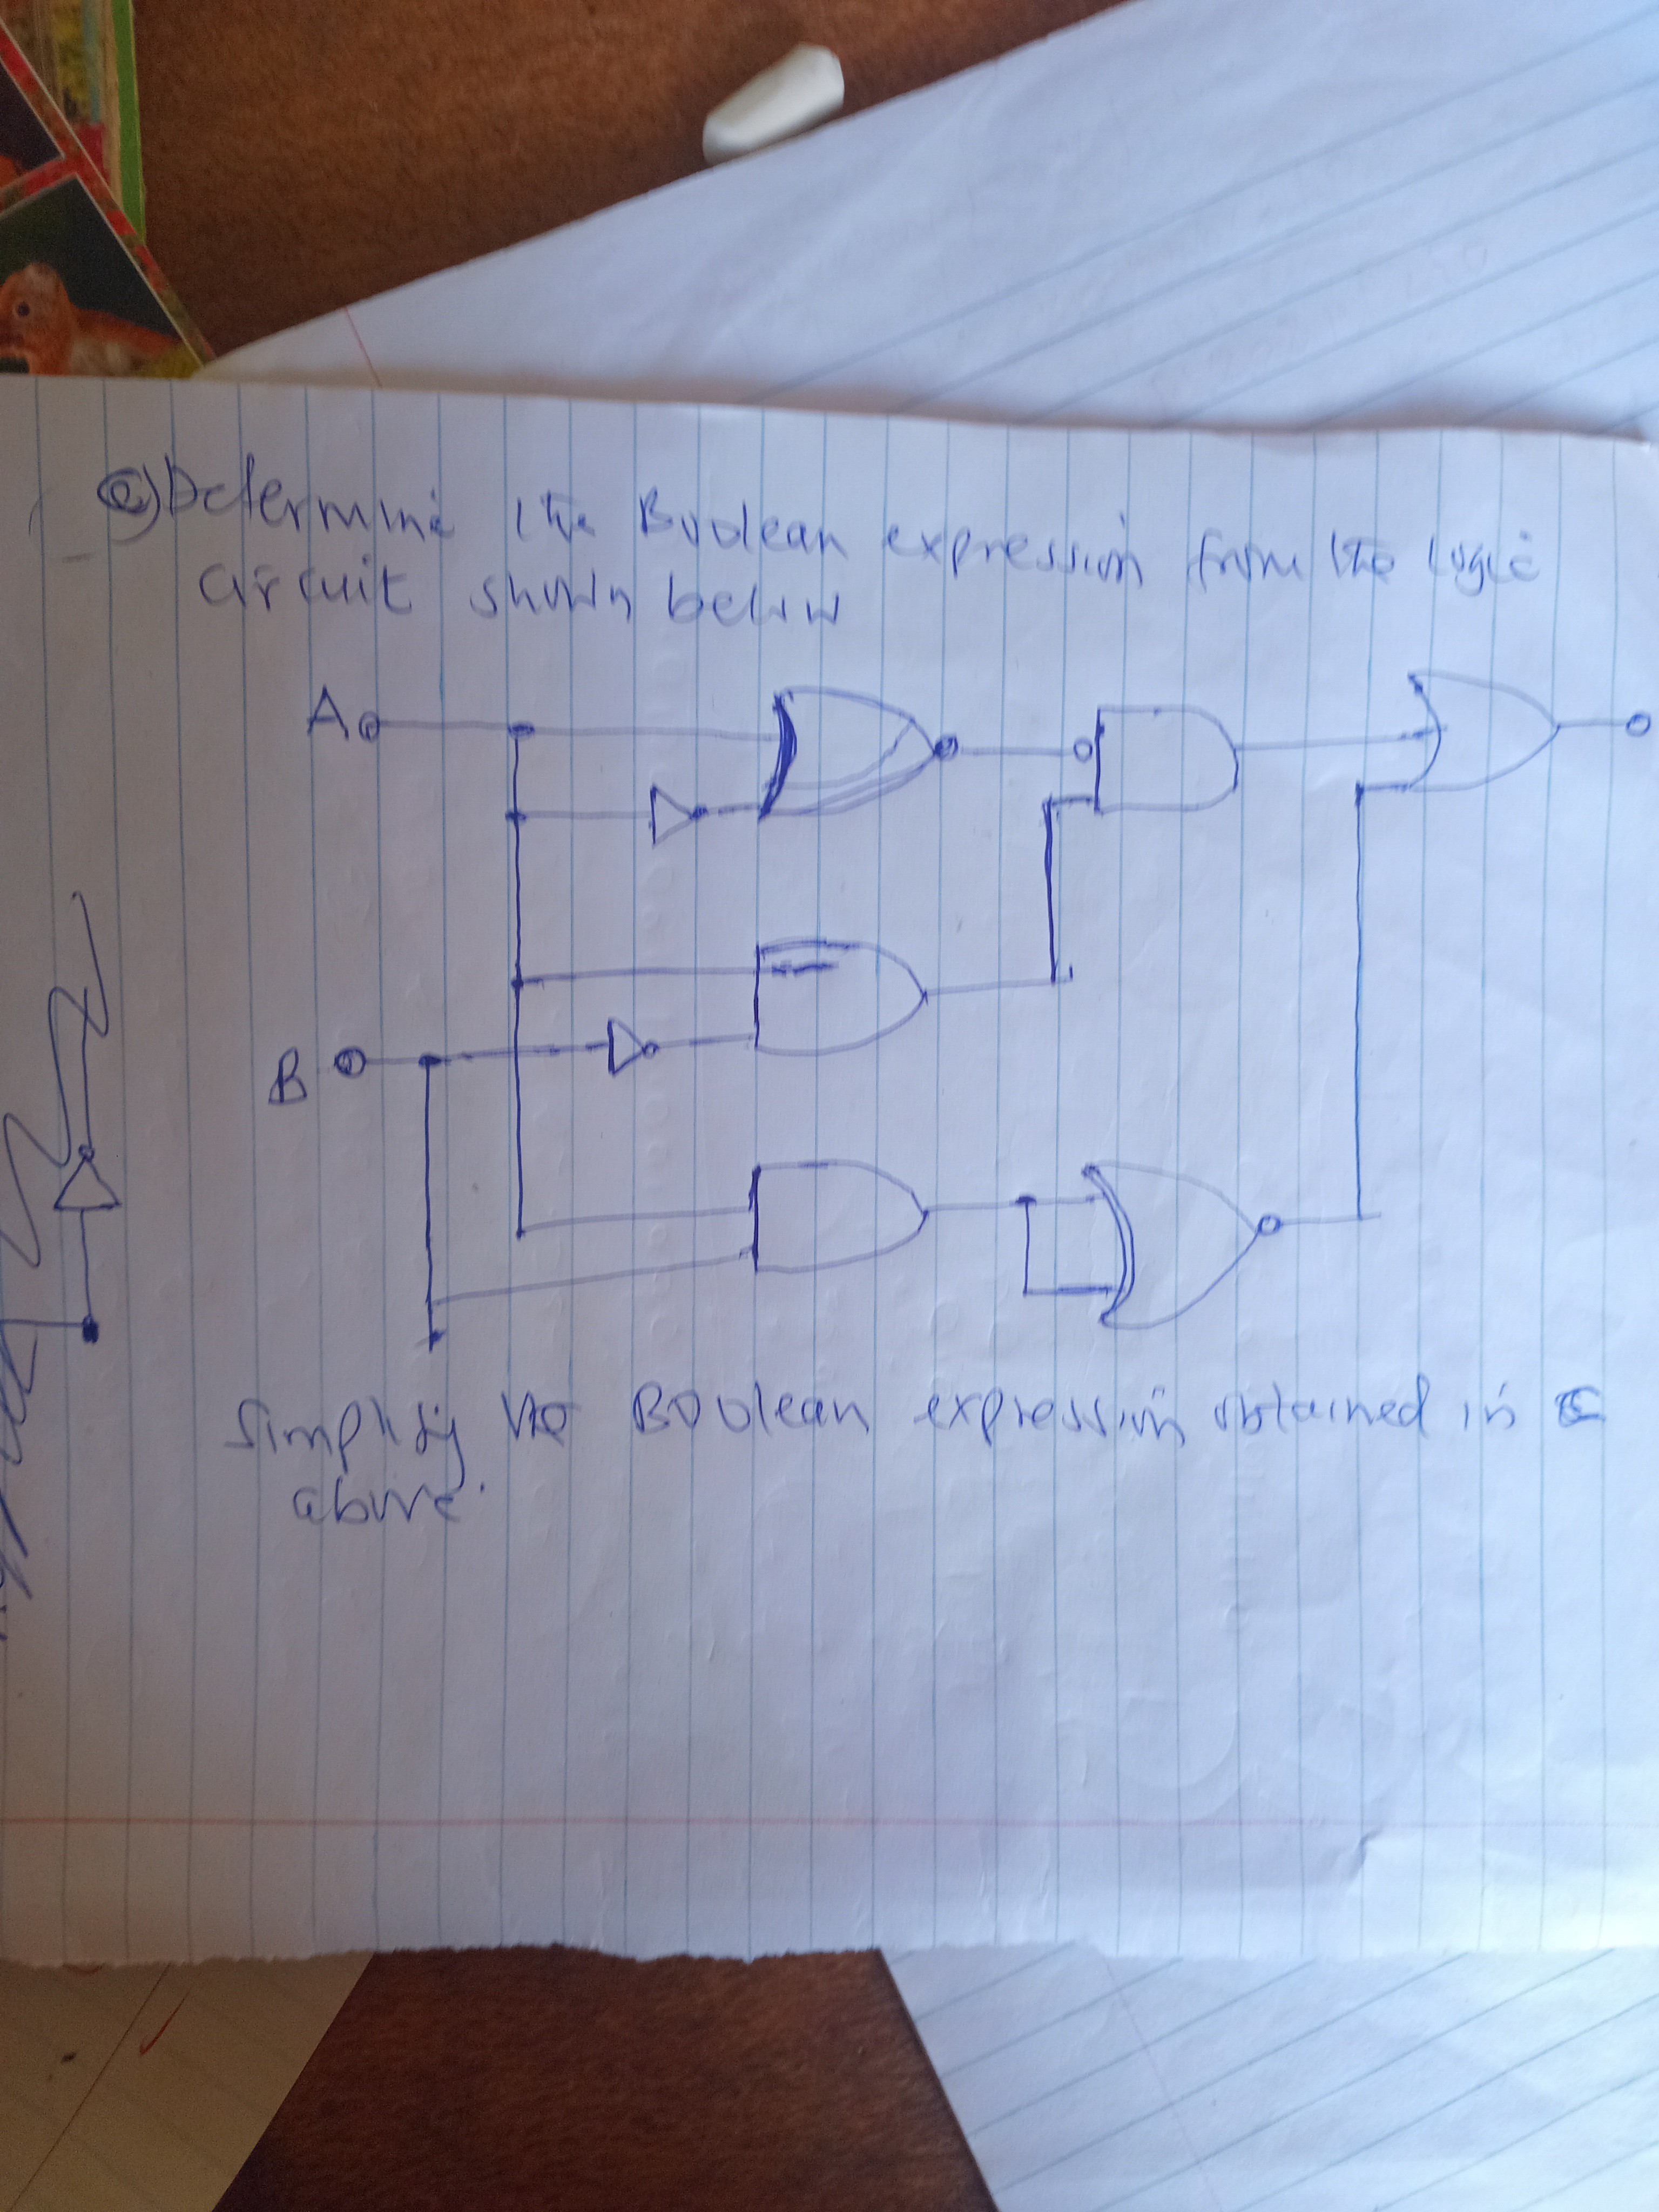 c) Determine the Boolean expression from the logic
circuit shown below
A
B
Simplify the Boolean expression obtained in c
above.